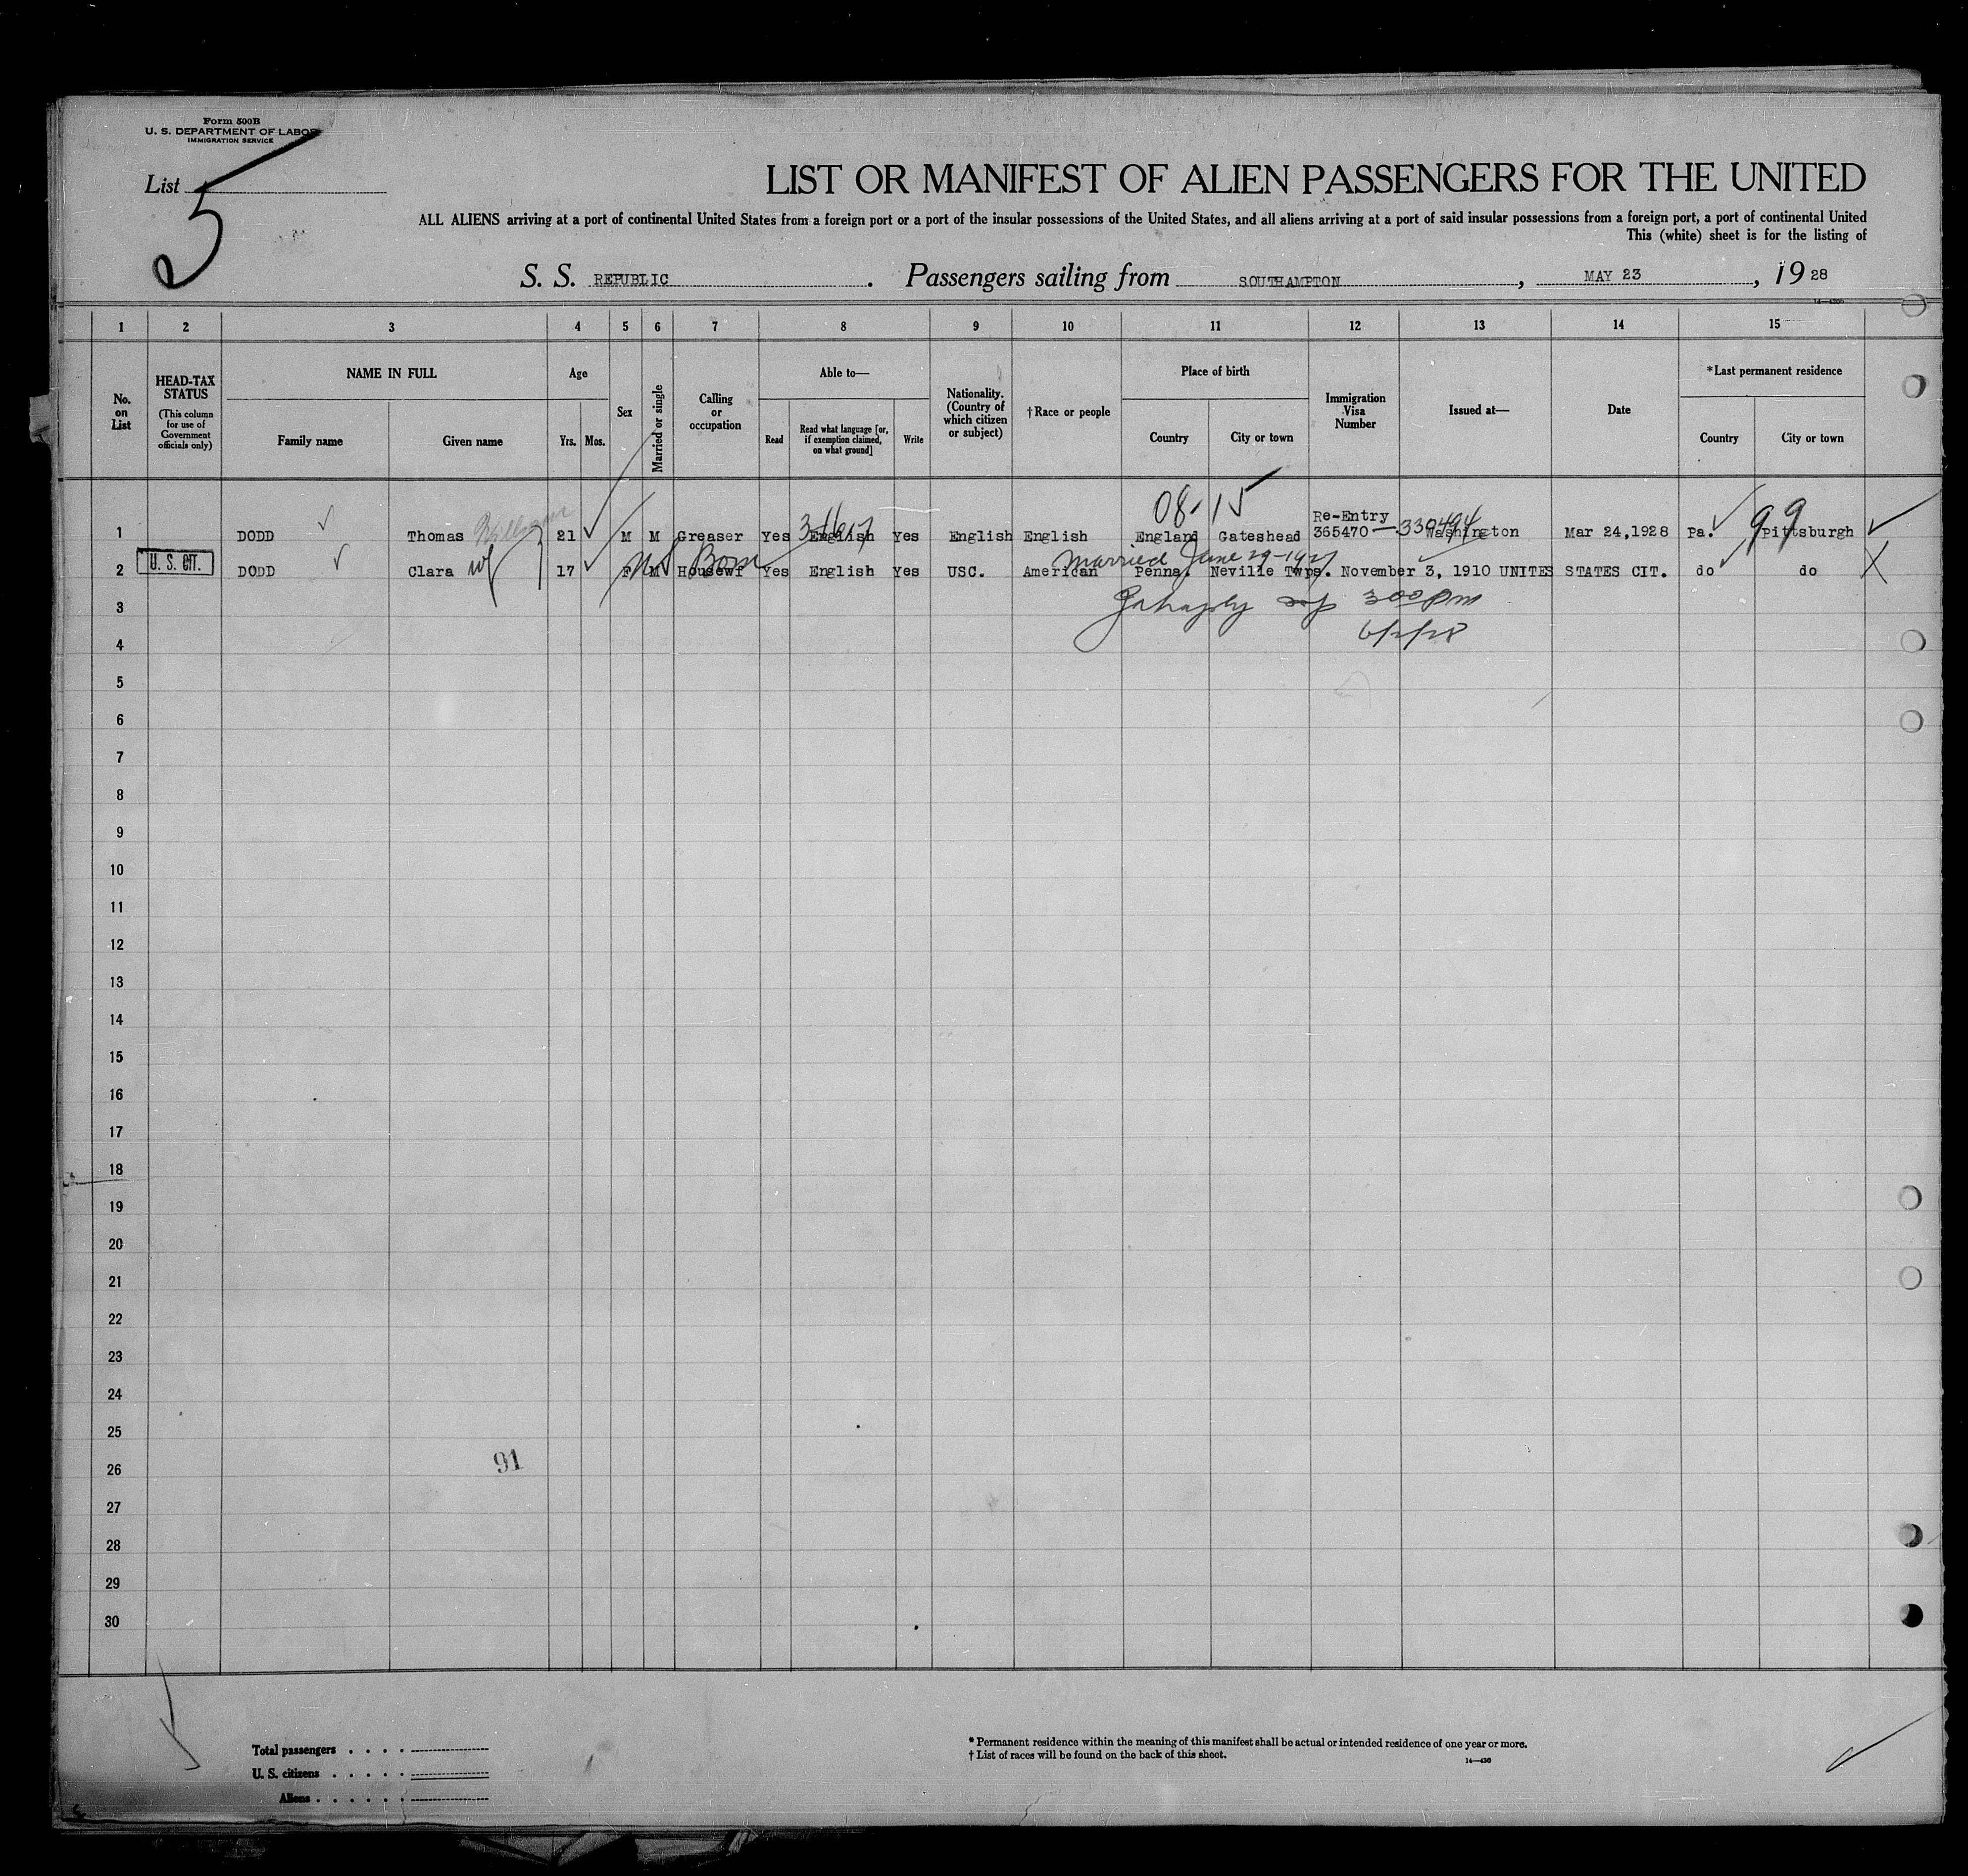 Form 500B
U. S. DEPARTMENT OF LABOR
IMMIGRATION SERVICE
List 5
LIST OR MANIFEST OF ALIEN PASSENGERS FOR THE UNITED
ALL ALIENS arriving at a port of continental United States from a foreign port or a port of the insular possessions of the United States, and all aliens arriving at a port of said insular possessions from a foreign port, a port of continental United
This (white) sheet is for the listing of
S. S. REPUBLIC . Passengers sailing from SOUTHAMPTON , MAY 23 , 19 28
1 2 3 4 5 6 7 8 9 10 11 12 13 14 15
No. on List
HEAD-TAX STATUS
(This column for use of Government officials only)
NAME IN FULL
Family name
Given name
Age
Yrs. Mos.
Sex
Married or single
Calling or occupation
Able to—
Read
Read what language [or, if exemption claimed, on what ground]
Write
Nationality. (Country of which citizen or subject)
†Race or people
Place of birth
Country
City or town
Immigration Visa Number
Issued at—
Date
*Last permanent residence
Country
City or town
08-15
1 DODD Thomas William 21 M M Greaser Yes English Yes English English England Gateshead Re-Entry 365470 - 330494 Washington Mar 24,1928 Pa. 99 Pittsburgh
US Born
Married June 29-1927
2 U. S. CIT. DODD Clara wf 17 F M Housewf Yes English Yes USC. American Penna. Neville Twps. November 3, 1910 UNITES STATES CIT. do do
3
300 pm
4
6/2/28
5
6
7
8
9
10
11
12
13
14
15
16
17
18
19
20
21
22
23
24
25
26
91
27
28
29
30
Total passengers . . . .
U. S. citizens . . . . .
Aliens . . . . . .
* Permanent residence within the meaning of this manifest shall be actual or intended residence of one year or more.
† List of races will be found on the back of this sheet.
14—430